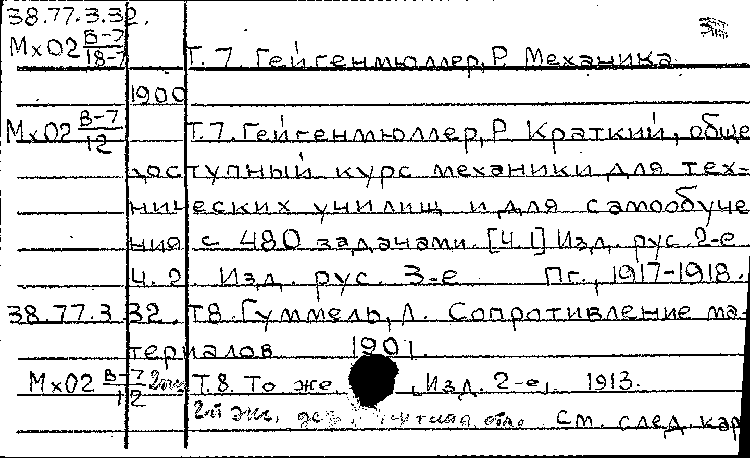 38.77.3.32.
МхО2 В-7/18-7 Т. 7. Гейгенмюллер, Р. Механика.
1900
МхО2 В-7/12 Т.7. Гейгенмюллер, Р. Краткий, обще
доступный курс механики для тех-
нических училищ и для самообуче
ния с 480 задачами. [Ч 1] Изд. рус. 2-е
Ч. 2. Изд. рус. 3-е Пг., 1917-1918.
38.77.3.32. Т.8. Гуммель, Л. Сопротивление ма-
териалов 1901.
МхО2 В-7/12 Т.8. То же. , Изд. 2-е, 1913.
2-й экз. см. след. кар